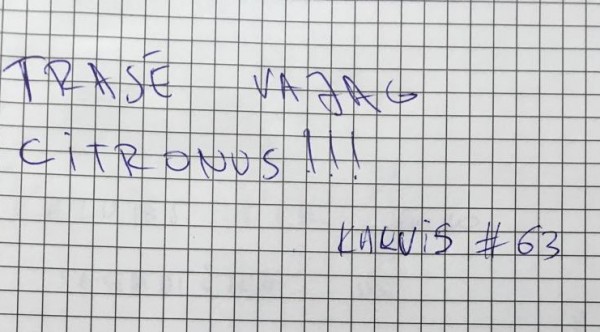 TRASÉ VAJAG
CiTRONUS!!!
KALViS #63